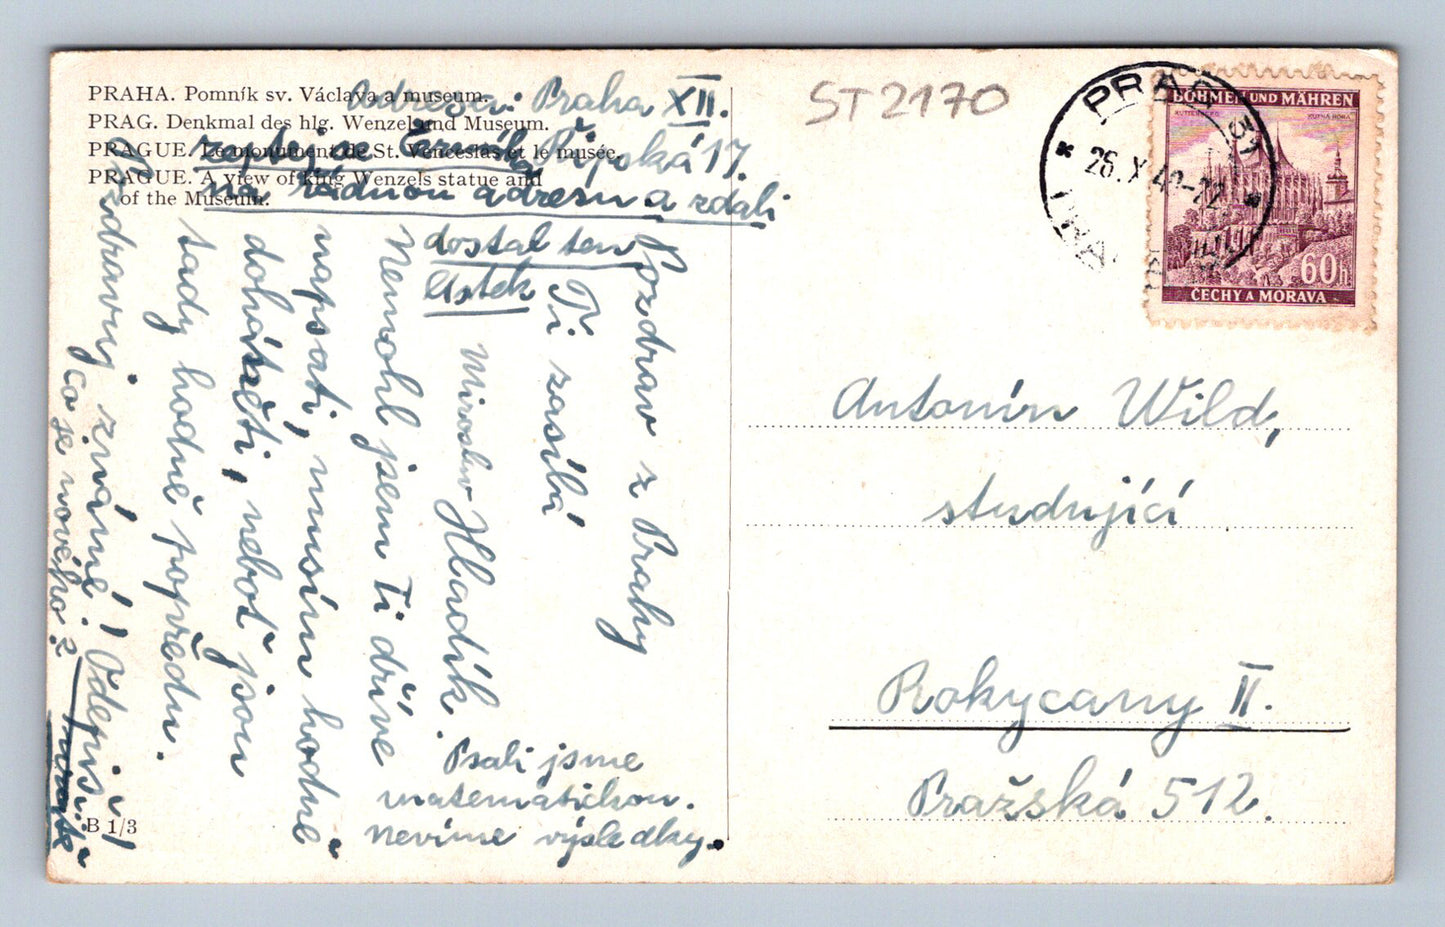 PRAHA. Pomník sv. Václava a museum.
PRAG. Denkmal des hlg. Wenzel und Museum.
PRAGUE. Le monument de St. Venceslás et le musée.
PRAGUE. A view of king Wenzels statue and
of the Museum.
Praha XII.
Řipská 17.
na řádnou adresu a zdali
dostal ten
lístek
Pozdrav z Prahy
Ti zasílá
Miroslav Hladík.
Nemohl jsem Ti dříve
napsati, musím hodně
doháněti, neboť jsou
tady hodně popředu.
Pozdravuj známé! Odepiš!
co je nového?
Psali jsme
matematickou.
Nevíme výsledky.
B 1/3
ST2170
PRAG
26.X.42-22
BÖHMEN UND MÄHREN
KUTTENBERG
KUTNÁ HORA
60h
ČECHY A MORAVA
Antonín Wild,
studující
Rokycany II.
Pražská 512.